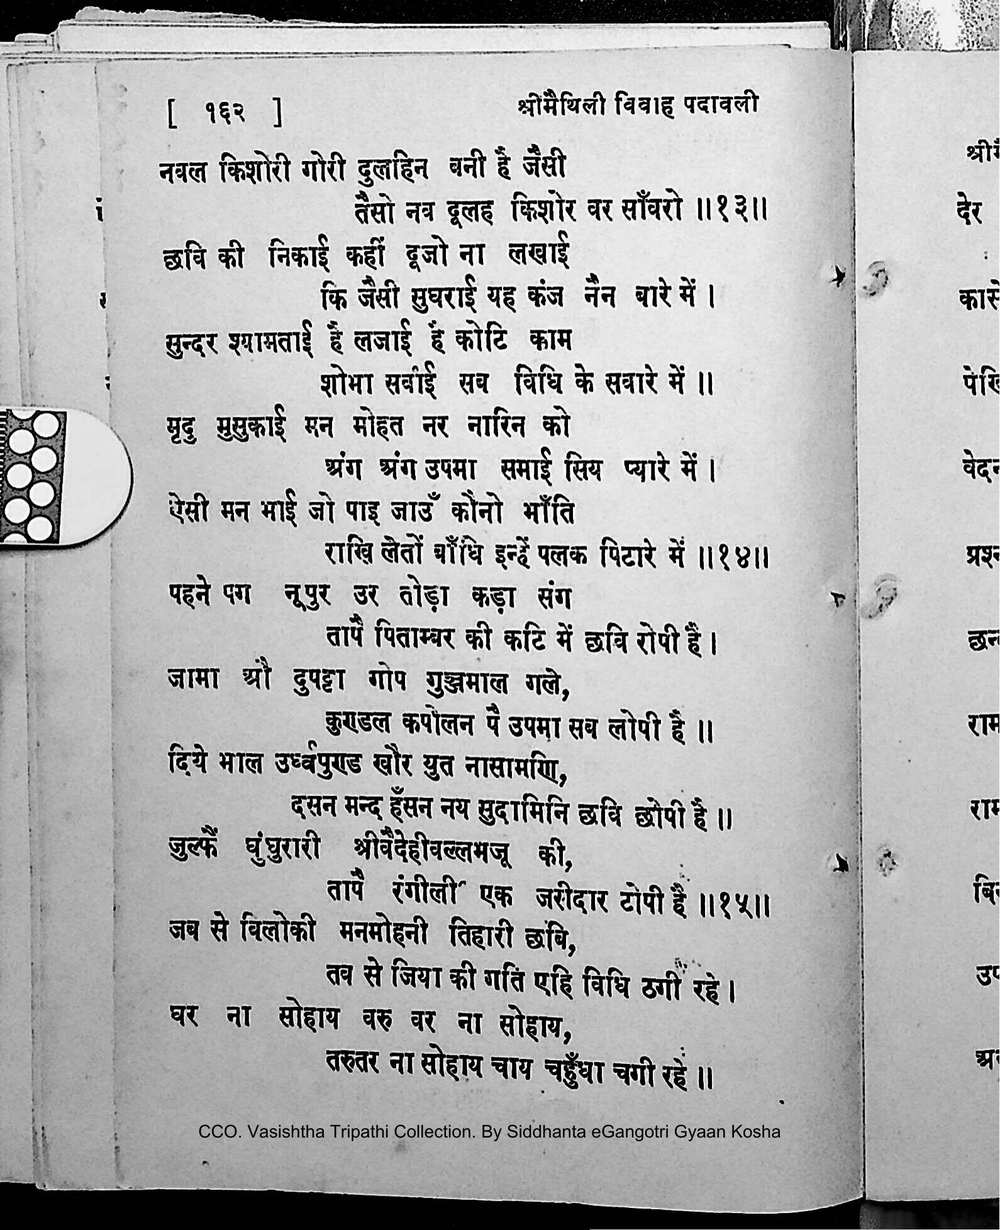 [ १६२ ] श्रीमैथिली विवाह पदावली
नवल किशोरी गोरी दुलहिन बनी है जैसी
तैसो नव दूलह किशोर वर साँवरो ॥१३॥
छवि की निकाई कहीं दूजो ना लखाई
कि जैसी सुघराई यह कंज नैन बारे में ।
सुन्दर श्यामताई है लजाई है कोटि काम
शोभा सर्वाई सब विधि के सवारे में ॥
मृदु मुसुकाई मन मोहत नर नारिन को
अंग अंग उपमा समाई सिय प्यारे में ।
ऐसी मन भाई जो पाइ जाउँ कौनो भाँति
राखि लेतों बाँधि इन्हें पलक पिटारे में ॥१४॥
पहने पग नूपुर उर तोड़ा कड़ा संग
तापै पिताम्बर की कटि में छवि रोपी है ।
जामा औ दुपट्टा गोप गुञ्जमाल गले,
कुण्डल कपोलन पै उपमा सब लोपी है ॥
दिये भाल उर्ध्वपुण्ड खौर युत नासामणि,
दसन मन्द हँसन नय सुदामिनि छवि छोपी है ॥
जुल्फैं घुंघुरारी श्रीवैदेहीवल्लभजू की,
तापै रंगीली एक जरीदार टोपी है ॥१५॥
जब से विलोकी मनमोहनी तिहारी छवि,
तव से जिया की गति एहि विधि ठगी रहे ।
घर ना सोहाय वरु वर ना सोहाय,
तरुतर ना सोहाय चाय चहुँधा चगी रहे ॥
CCO. Vasishtha Tripathi Collection. By Siddhanta eGangotri Gyaan Kosha